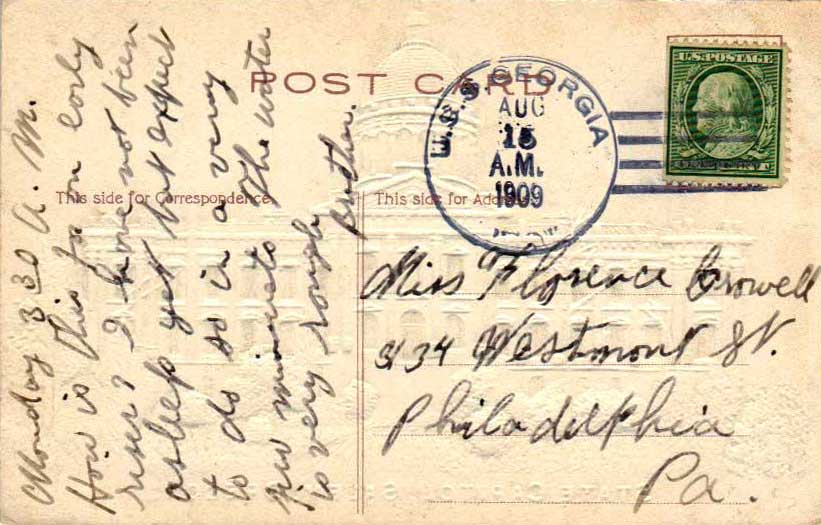 POST CARD
This side for Correspondence.
This side for Address
U.S.S. GEORGIA
AUG
15
A.M.
1909
U.S. POSTAGE
Monday 3 30 A. M.
How is this for an early
riser? I have not been
asleep yet but expect
to do so in a very
few minuets The water
is very rough
Brother.
Miss Florence Crowell
3134 Westmont St.
Philadelphia
Pa.